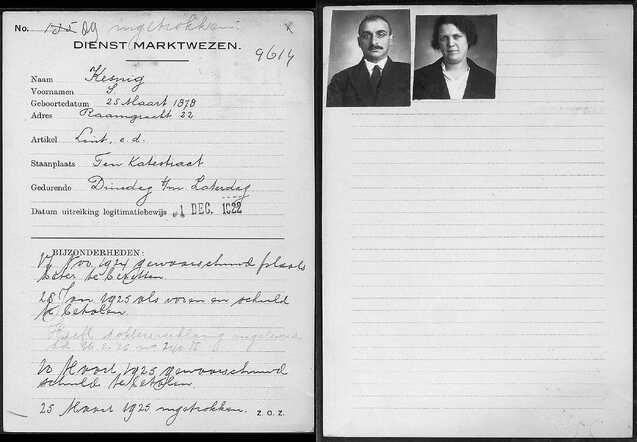 No. 1509 ingetrokken.
DIENST MARKTWEZEN.
9614
Naam Kesnig
Voornamen S.
Geboortedatum 25 Maart 1878
Adres Raamgracht 22
Artikel Lint, e.d.
Staanplaats Ten Katestraat
Gedurende Dinsdag t/m Zaterdag
Datum uitreiking legitimatiebewijs 1 DEC. 1922
BIJZONDERHEDEN:
17 Nov 1924 gewaarschuwd plaats
beter te bezetten.
28 Jan 1925 als voren en schuld
te betalen.
Heeft doktersverklaring ingeleverd
20 Maart 1925 gewaarschuwd
schuld te betalen.
25 Maart 1925 ingetrokken.
Z.O.Z.